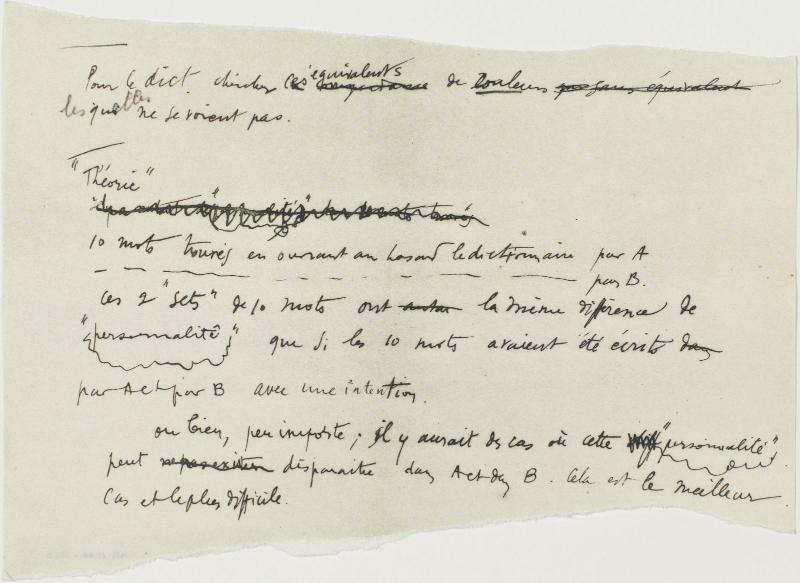 Pour le dict. chercher les équivalents de couleurs
lesquelles ne se voient pas.
"Théorie"
10 mots trouvés en ouvrant au hasard le dictionnaire par A
par B.
ces 2 "sets" de 10 mots ont la même différence de
"personnalité" que si les 10 mots avaient été écrits
par A et par B avec une intention.
ou bien, peu importe ; il y aurait des cas où cette "personnalité"
peut disparaitre dans A et dans B. Cela est le meilleur
cas et le plus difficile.